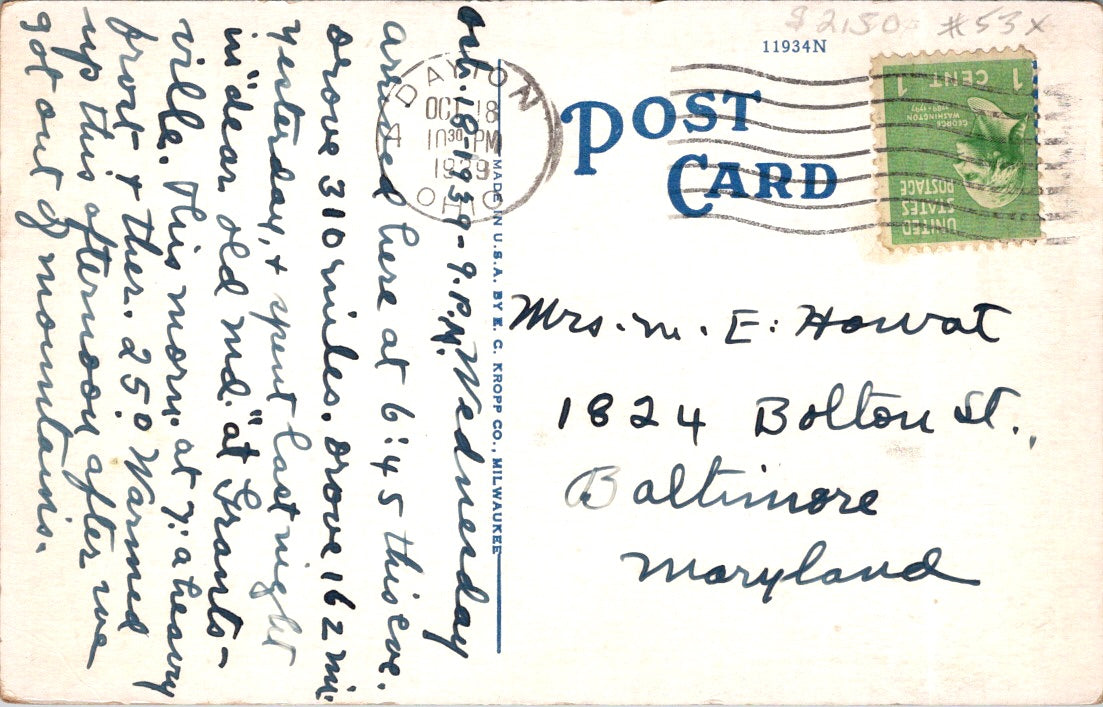 $2.50 #53x
11934N
POST
CARD
DAYTON
OCT 18
10 30 PM
1939
OHIO
4
1 CENT 1
GEORGE
WASHINGTON
1789-1797
UNITED
STATES
POSTAGE
MADE IN U.S.A. BY E. C. KROPP CO., MILWAUKEE
Oct. 18-1939-9.P.M. Wednesday
arrived here at 6:45 this eve.
drove 310 miles. drove 162 mi.
yesterday, & spent last night
in "dear old Md." at Grants-
ville. This morn. at 7: a heavy
frost & ther. 25.º Warmed
up this afternoon after we
got out of mountains.
Mrs. M. E. Howat
1824 Bolton St.,
Baltimore
Maryland